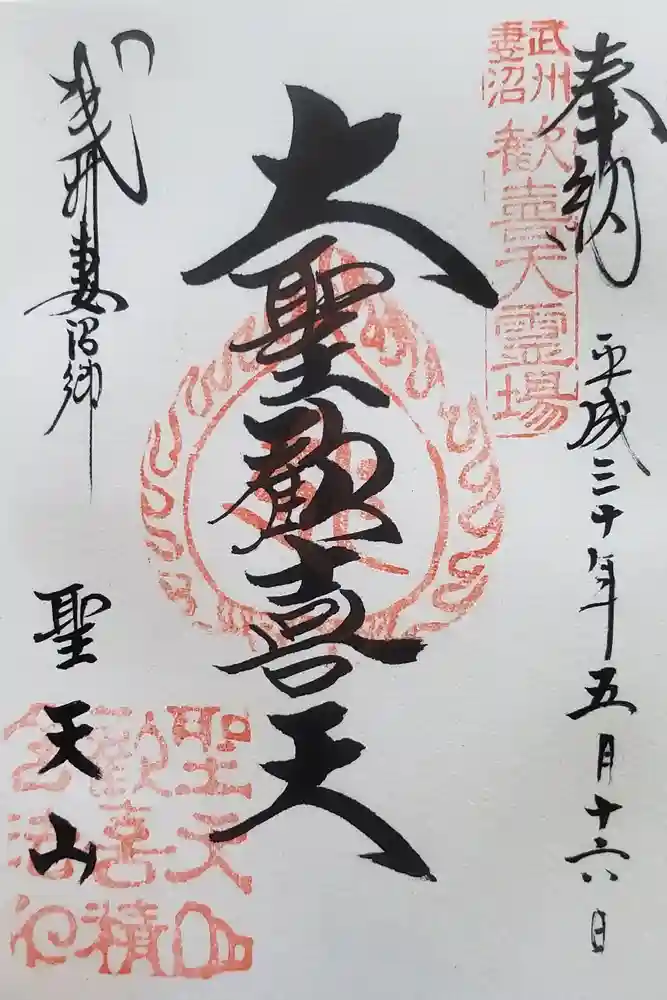 奉納
平成三十年五月十六日
武州
妻沼
歓喜天霊場
大聖歓喜天
武州妻沼郷
聖天山
聖天山
歓喜